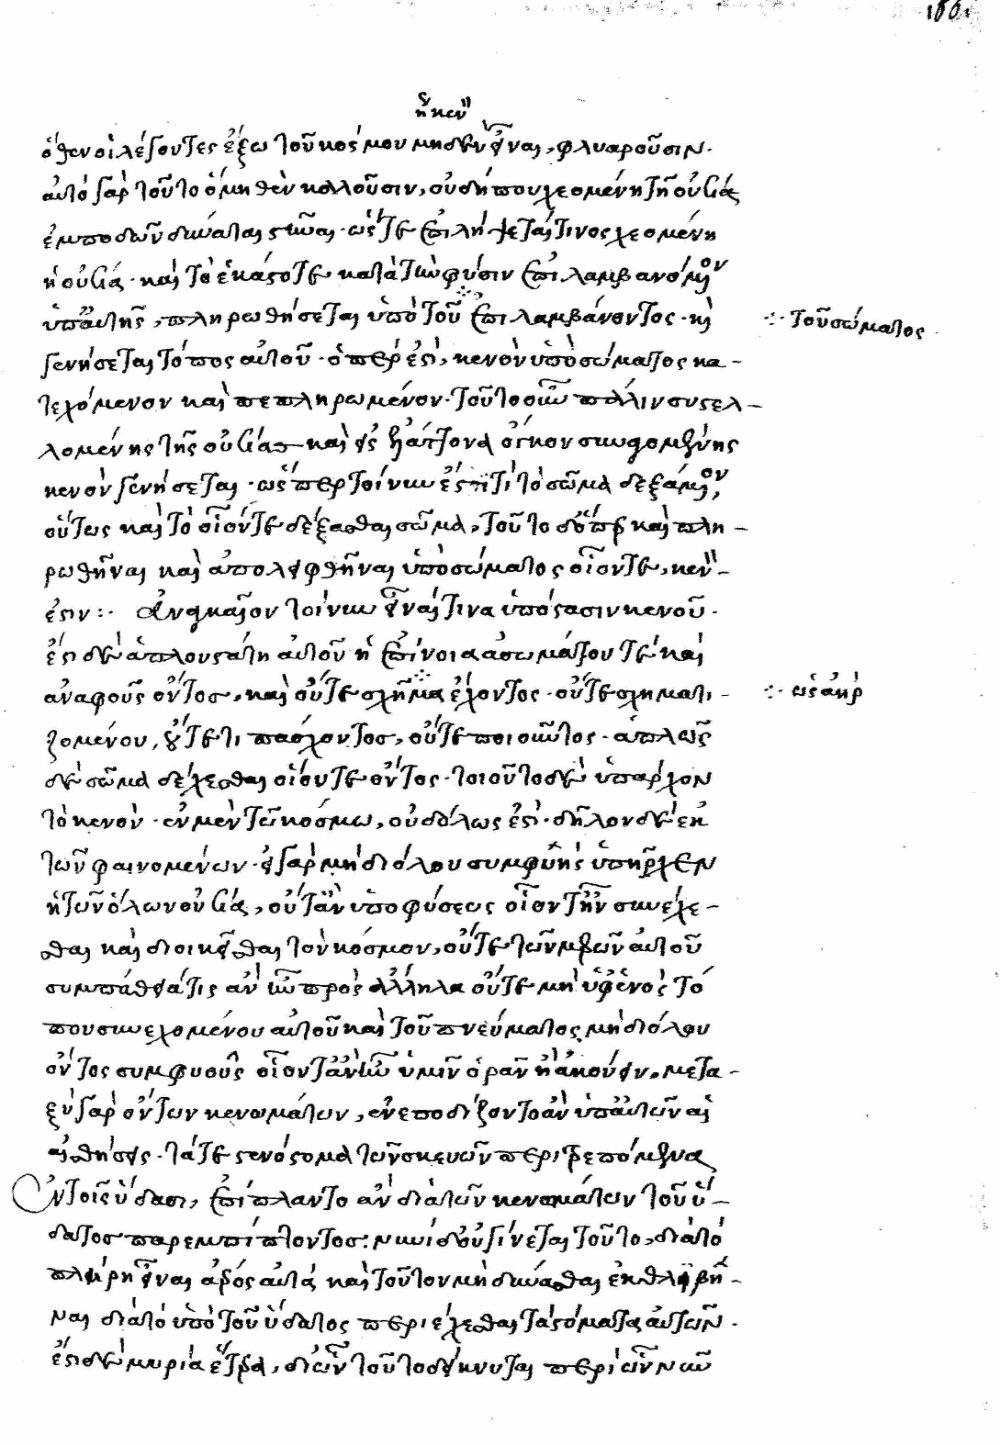 ἢ κενὸν
ὅθεν οἱ λέγοντες ἔξω τοῦ κόσμου μηδὲν εἶναι, φλυαροῦσιν·
αὐτὸ γὰρ τοῦτο ὃ μηθὲν καλοῦσιν, οὐ δήπου χεομένῃ τῇ οὐσίᾳ
ἐμποδὼν δύναται στῆναι· ὥστε ἐπιλήψεταί τινος χεομένη
ἡ οὐσία· καὶ τὸ ἑκάστοτε κατὰ τὴν φύσιν ἐπιλαμβανόμενον
ὑπ' αὐτῆς, πληρωθήσεται ὑπὸ τοῦ ἐπιλαμβάνοντος· καὶ ⁘ τοῦ σώματος
γενήσεται τόπος αὐτοῦ· ὅπερ ἐστὶ, κενὸν ὑπὸ σώματος κα-
τεχόμενον καὶ πεπληρωμένον· τοῦτο οὖν πάλιν συστελ-
λομένης τῆς οὐσίας καὶ εἰς ἐλάττονα ὄγκον συναγομένης
κενὸν γενήσεται· ὥσπερ τοίνυν ἔστι τι τὸ σῶμα δεξάμενον,
οὕτως καὶ τὸ οἷόν τε δέξασθαι σῶμα, τοῦτο δὲ ὅπερ καὶ πλη-
ρωθῆναι καὶ ἀπολειφθῆναι ὑπὸ σώματος οἷόν τε, κενόν
ἐστιν: Ἀναγκαῖον τοίνυν εἶναί τινα ὑπόστασιν κενοῦ·
ἔστι δὲ ἁπλουστάτη αὐτοῦ ἡ ἐπίνοια ἀσωμάτου τε καὶ
ἀναφοῦς ὄντος, καὶ οὔτε σχῆμα ἔχοντος· οὔτε σχηματι- ⁘ ὡς ἀὴρ
ζομένου, οὔτέ τι πάσχοντος, οὔτε ποιοῦντος· ἁπλῶς
δὲ σῶμα δέχεσθαι οἵου τε ὄντος· τοιοῦτο δὲ ὑπάρχον
τὸ κενὸν· ἐν μὲν τῷ κόσμῳ, οὐδόλως ἐστὶ· δῆλον δὲ ἐκ
τῶν φαινομένων· εἰ γὰρ μὴ διόλου συμφυὴς ὑπῆρχεν
ἡ τῶν ὅλων οὐσία, οὔτ' ἂν ὑπὸ φύσεως οἷόν τ' ἦν συνέχε-
σθαι καὶ διοικεῖσθαι τὸν κόσμον, οὔτε τῶν μερῶν αὐτοῦ
συμπάθειά τις ἂν ἦν πρὸς ἄλληλα οὔτε μὴ ὑφ' ἑνὸς τό
νου συνεχομένου αὐτοῦ καὶ τοῦ πνεύματος μὴ διόλου
ὄντος συμφυοῦς οἷόν τ' ἂν ἦν ὑμῖν ὁρᾶν ἢ ἀκούειν. μετα-
ξὺ γὰρ ὄντων κενωμάτων, ἐνεποδίζοντο ἂν ὑπ' αὐτῶν αἱ
αἰσθήσεις· τά τε στενόστομα τῶν σκευῶν περιτρεπόμενα
ἐν τοῖς ὕδασι, ἐπίπλαντο ἂν διὰ τῶν κενωμάτων τοῦ ὕ-
δατος παρεμπίπτοντος: νυνὶ δ' οὐ γίνεται τοῦτο, διὰ τὸ
πλήρη εἶναι ἀέρος αὐτά καὶ τοῦτον μὴ δύνασθαι ἐκθλιβῆ-
ναι διὰ τὸ ὑπὸ τοῦ ὕδατος περιέχεσθαι τὰ στόματα αὐτῶν·
ἔστι δὲ μυρία ἕτερα, δι' ὧν τοῦτο δείκνυται περὶ ὧν νῦν